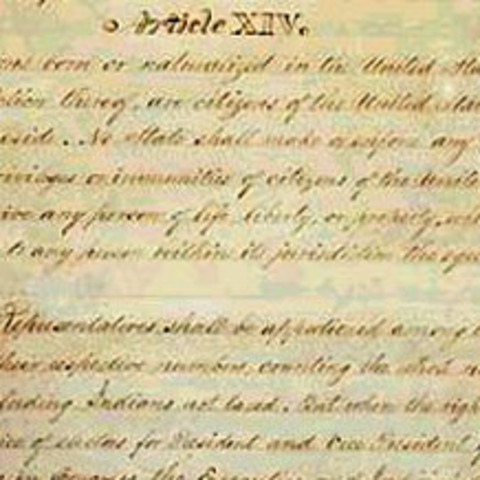 Article XIV.
ons born or naturalized in the United Sta
diction thereof, are citizens of the United Stat
reside. No State shall make or enforce any
privileges or immunities of citizens of the Unite
rive any person of life, liberty, or property, wit
to any person within its jurisdiction the equ
Representatives shall be apportioned among
their respective numbers, counting the whole n
cluding Indians not taxed. But when the righ
ice of electors for President and Vice President
in Congress, the Executive and Judicial